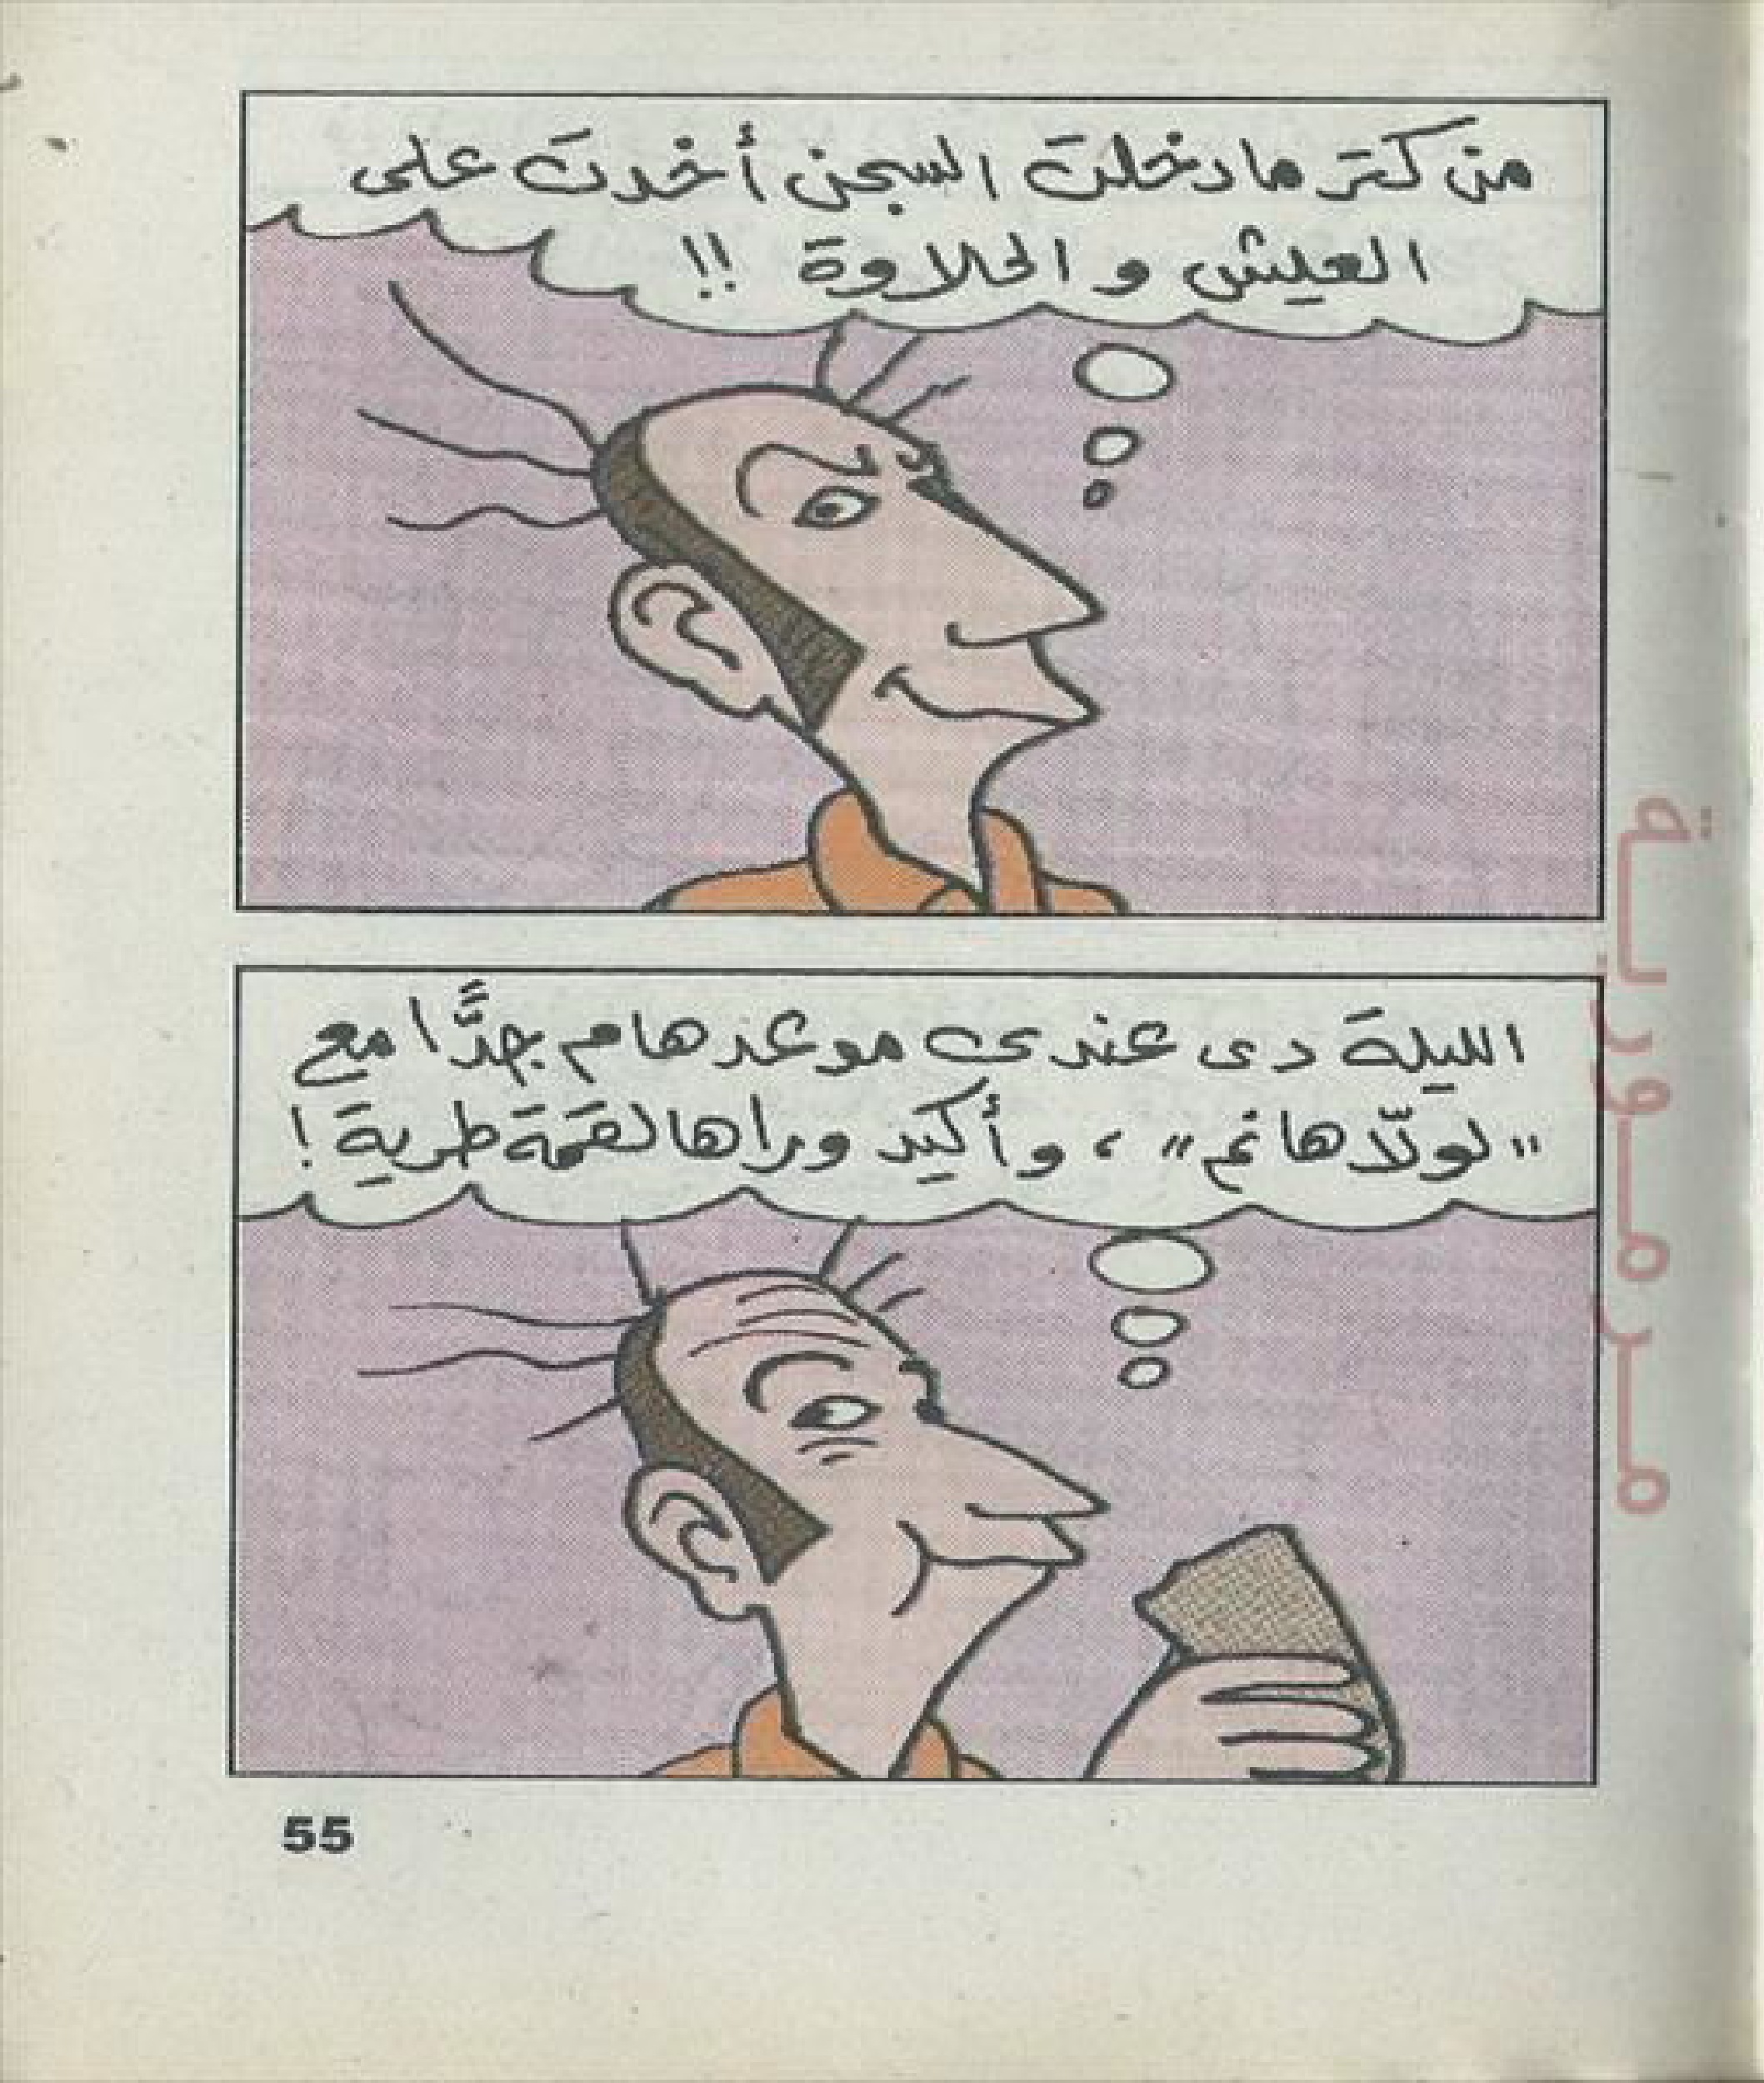 من كتر ما دخلت السجن أخدت على
العيش و الحلاوة !!
الليلة دى عندى موعد هام جدًّا مع
"لولّا هانم" ، وأكيد وراها لقمة طرية !
55
مرمورية